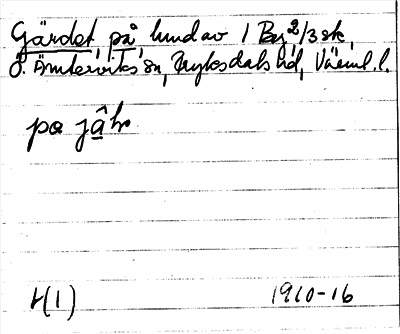 Gärdet, på, lund av 1 By 2/3 sk,
Ö. Ämterviks sn, Fryksdals hd, Värml. l.
pɑ jâ̱
H(1) 1910-16